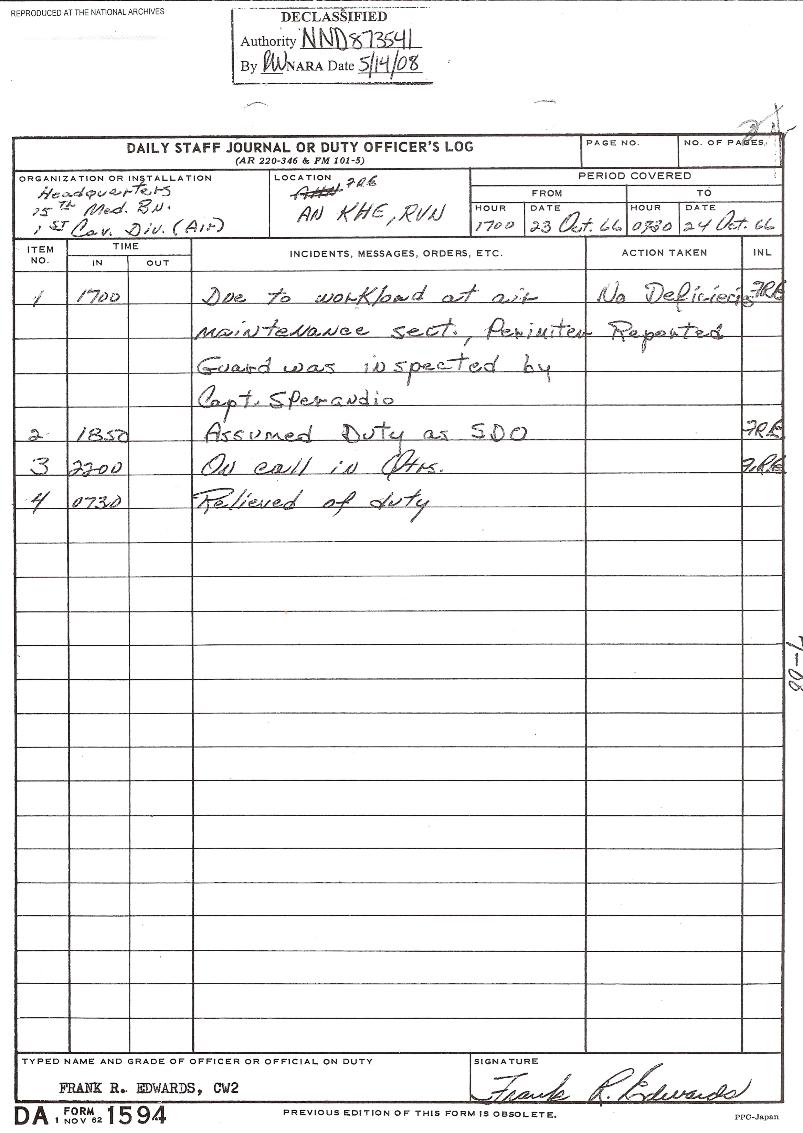 REPRODUCED AT THE NATIONAL ARCHIVES
DECLASSIFIED
Authority NND873541
By NARA Date 5/14/08
DAILY STAFF JOURNAL OR DUTY OFFICER'S LOG
(AR 220-346 & FM 101-5)
PAGE NO.
NO. OF PAGES
ORGANIZATION OR INSTALLATION
Headquarters
15TH Med. BN.
1ST Cav. Div. (Air)
LOCATION
FRE
AN KHE, RVN
PERIOD COVERED
FROM
TO
HOUR DATE HOUR DATE
1700 23 Oct. 66 0730 24 Oct. 66
ITEM NO.
TIME
IN OUT
INCIDENTS, MESSAGES, ORDERS, ETC.
ACTION TAKEN
INL
1 1700 Due to workload at air No Deficiecies FRE
maintenance sect., Perimiter Reported
Guard was inspected by
Capt. Sperandio
2 1850 Assumed Duty as SDO FRE
3 2200 On call in Qtrs. FRE
4 0730 Relieved of duty
7-08
TYPED NAME AND GRADE OF OFFICER OR OFFICIAL ON DUTY
FRANK R. EDWARDS, CW2
SIGNATURE
Frank R. Edwards
DA FORM 1 NOV 62 1594
PREVIOUS EDITION OF THIS FORM IS OBSOLETE.
PPC-Japan